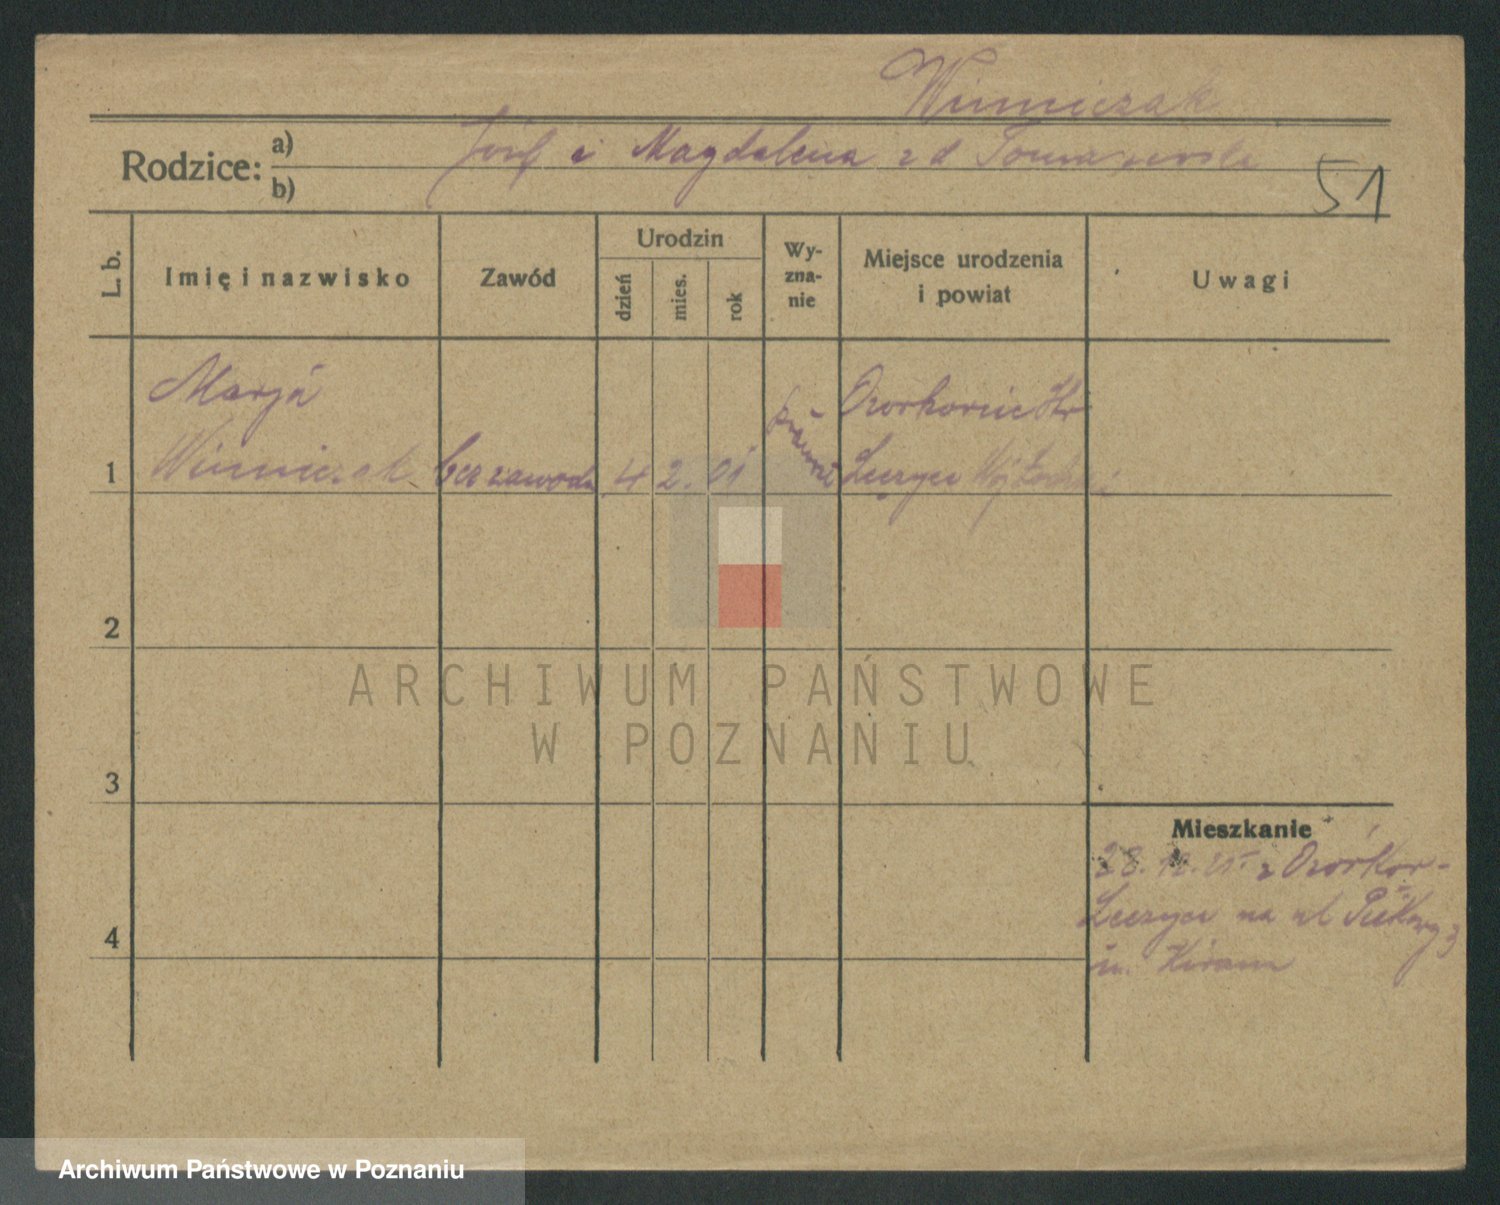 Winniczak
Rodzice: a) Józef i Magdalena z d Tomaszewska
b)
51
L. b.
Imię i nazwisko
Zawód
Urodzin
dzień
mies.
rok
Wy-
zna-
nie
Miejsce urodzenia
i powiat
Uwagi
Marja
1 Winniczak bez zawodu 4 2. 01
Łęczyca
2
3
4
Mieszkanie
28. 12. z Ozorkow-
Łeczyca na ul
ARCHIWUM PAŃSTWOWE
W POZNANIU
Archiwum Państwowe w Poznaniu